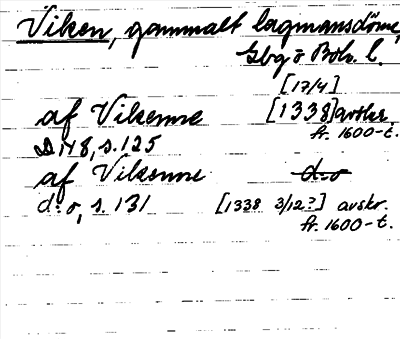 Viken, gammalt lagmansdöme,
Gbg o Boh. l.
[17/4]
af Vikenne [1338] avskr.
fr. 1600-t.
s. 125
af Vikenne d:o
d:o, s. 131 [1338 3/12?] avskr.
fr. 1600-t.